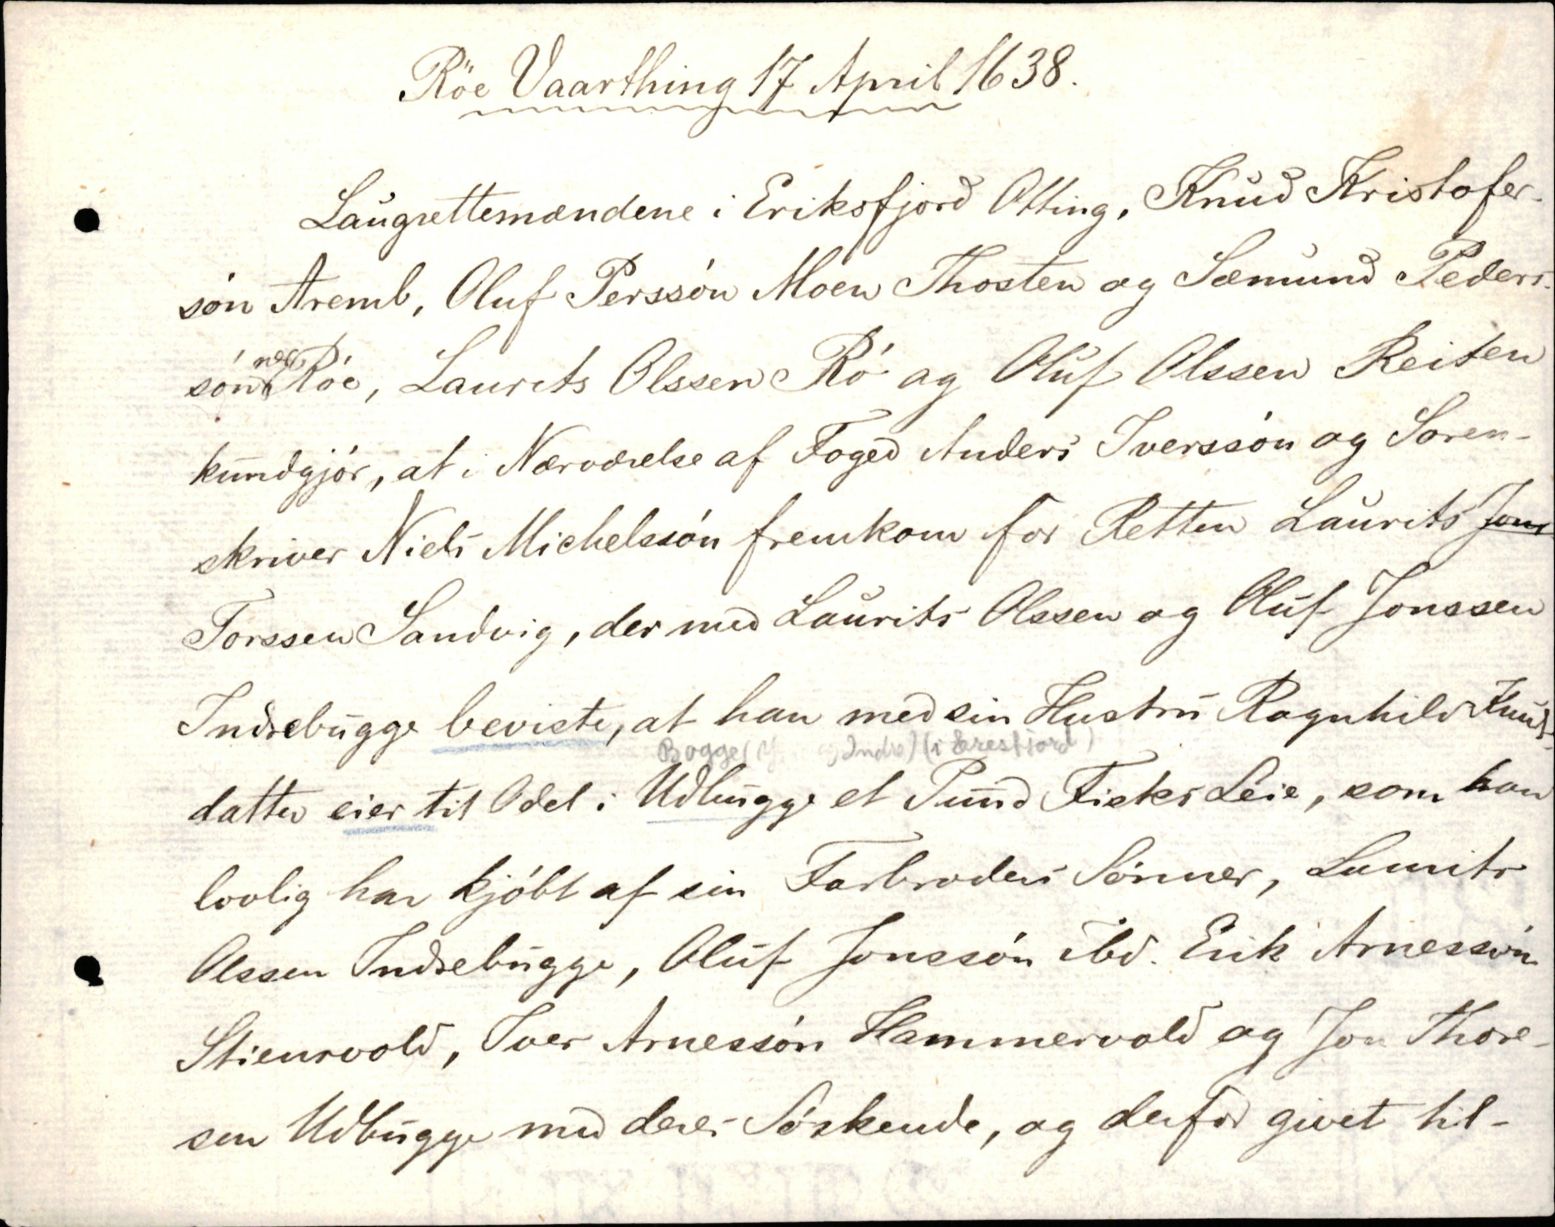 Röe Vaarthing 17 April 1638.
Laugrettemændene i Eriksfjord Otting, Knud Kristofer-
són Aremb, Oluf Perssón Moen Thosten og Sæmund Peders-
són Róe, Laurits Olssen Ró og Oluf Olssen Reiten
kundgjór, at i Nærværelse af Foged Anders Iverssón og Soren-
skriver Niels Michelssón fremkom for Retten Laurits
Torssen Sandvig, der med Laurits Olssen og Oluf Jonssen
Indrebugge beviste, at han med sin Hustru Ragnhild Knuds-
Bogge Indre) (i Eresfjord)
datter eier til Odel i Udbugge et Pund Fisks Leie, som han
lovlig har kjóbt af sin Farbroders Sónner, Laurits
Olssen Indrebugge, Oluf Jonssón ibd. Erik Arnessón
Stieurvold, Iver Arnessón Hammervold og Jon Thore-
sen Udbugge med deres Sóskende, og derfor givet til-